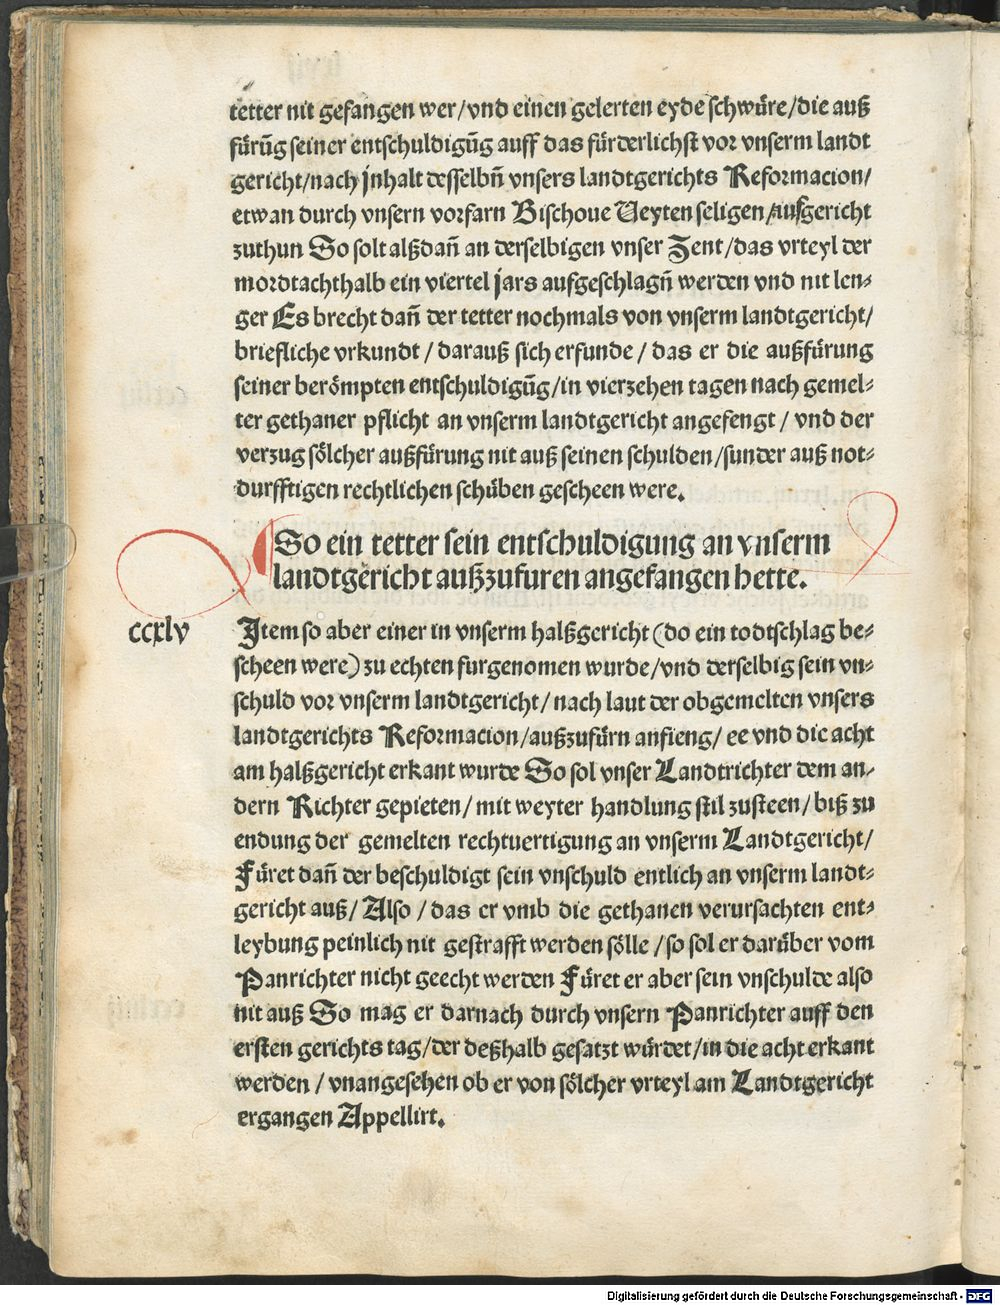 tetter nit gefangen wer/vnd einen gelerten eyde schwüre/die auß
fürūg seiner entschuldigūg auff das fürderlichst vor vnserm landt
gericht/nach jnhalt desselbn̄ vnsers landtgerichts Reformacion/
etwan durch vnsern vorfarn Bischoue Veyten seligen/aufgericht
zuthun So solt alßdan̄ an derselbigen vnser Zent/das vrteyl der
mordtachthalb ein viertel jars aufgeschlagn̄ werden vnd nit len⸗
ger Es brecht dan̄ der tetter nochmals von vnserm landtgericht/
briefliche vrkundt/darauß sich erfunde/das er die außfürung
seiner berömpten entschuldigūg/in vierzehen tagen nach gemel⸗
ter gethaner pflicht an vnserm landtgericht angefengt/vnd der
verzug sölcher außfürung nit auß seinen schulden/sunder auß not⸗
durfftigen rechtlichen schüben gescheen were.
So ein tetter sein entschuldigung an vnserm
landtgericht außzufuren angefangen hette.
ccxlv
Jtem so aber einer in vnserm halßgericht (do ein todtschlag be⸗
scheen were) zu echten furgenomen wurde/vnd derselbig sein vn⸗
schuld vor vnserm landtgericht/nach laut der obgemelten vnsers
landtgerichts Reformacion/außzufürn anfieng/ee vnd die acht
am halßgericht erkant wurde So sol vnser Landtrichter dem an⸗
dern Richter gepieten/mit weyter handlung stil zusteen/biß zu
endung der gemelten rechtuertigung an vnserm Landtgericht/
Füret dan̄ der beschuldigt sein vnschuld entlich an vnserm landt⸗
gericht auß/Also/das er vmb die gethanen verursachten ent⸗
leybung peinlich nit gestrafft werden sölle/so sol er darüber vom
Panrichter nicht geecht werden Füret er aber sein vnschulde also
nit auß So mag er darnach durch vnsern Panrichter auff den
ersten gerichts tag/der deßhalb gesatzt würdet/in die acht erkant
werden/vnangesehen ob er von sölcher vrteyl am Landtgericht
ergangen Appellirt.
Digitalisierung gefördert durch die Deutsche Forschungsgemeinschaft - DFG